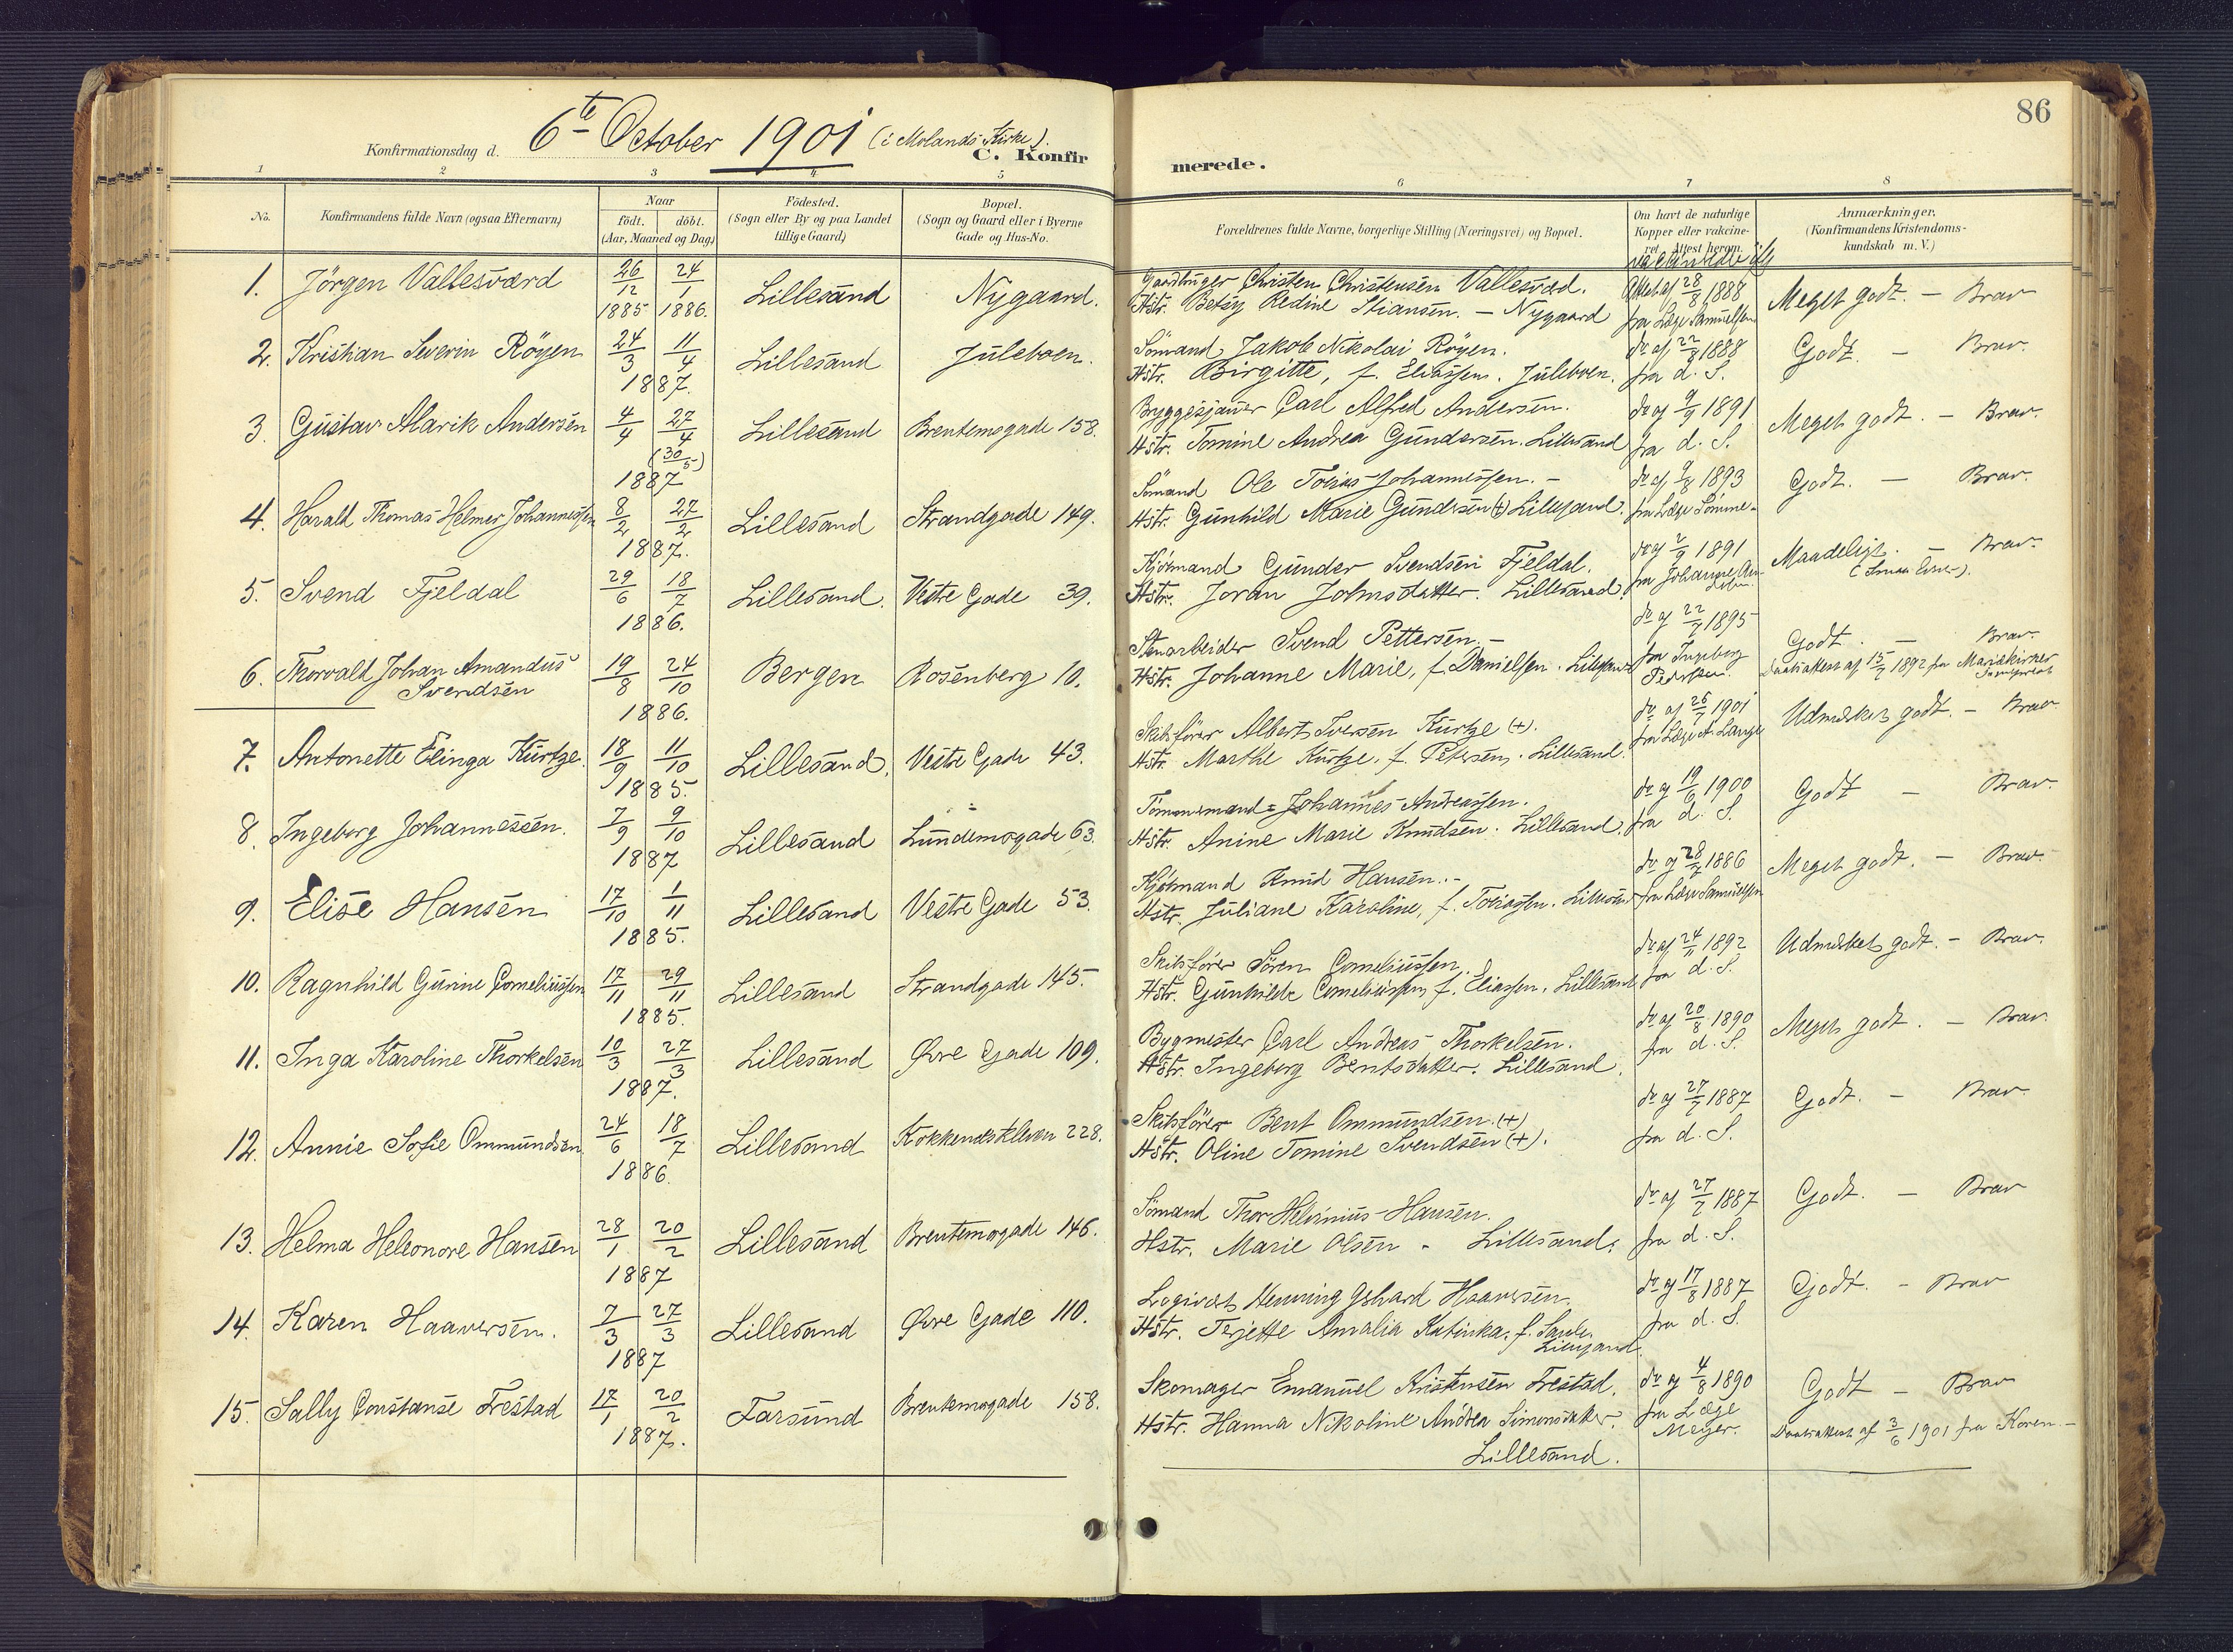 86
Konfirmationsdag d. 6te October 1901 (i Molands Kirke).
C. Konfirmerede.
1 2 3 4 5 6 7 8
No.
Konfirmandens fulde Navn (ogsaa Efternavn)
Naar
födt. döbt.
(Aar, Maaned og Dag)
Födested.
(Sogn eller By og paa Landet
tillige Gaard)
Bopæl.
(Sogn og Gaard eller i Byerne
Gade og Hus-No.
Forældrenes fulde Navne, borgerlige Stilling (Næringsvei) og Bopæl.
Om havt de naturlige
Kopper eller vakcine-
ret. Attest herom.
Anmærkninger.
(Konfirmandens Kristendoms-
kundskab m. V.)
vaccineret
1. Jörgen Vallesværd 26/12 1885 24/1 1886. Lillesand Nygaard. Gaardbruger Christen Christensen Vallesværd. Attest af 28/8 1888 Meget godt. – Brav
Hstr. Betsy Redine Stiansen. – Nygaard fra Læge Samuelsen
2. Kristian Severin Röyen 24/3 11/4 1887. Lillesand Juleboen. Sömand Jakob Nikolai Röyen. do af 22/8 1888 Godt. – Brav
Hstr. Birgitte, f. Eliassen. Juleboen. fra d. S.
3. Gustav Alarik Andersen 4/4 27/4 (30/5) 1887 Lillesand Brentemogade 158. Bryggesjauer Carl Alfred Andersen. do af 9/9 1891 Meget godt. – Brav.
Hstr. Tomine Andrea Gundersen. Lillesand fra d. S.
4. Harald Thomas Helmer Johannessen 8/2 27/2 1887. Lillesand Strandgade 149. Sömand Ole Tobias Johannessen. – do af 9/8 1893 Godt. – Brav.
Hstr. Gunhild Marie Gundersen (+) Lillesand. fra Læge Sömme
5. Svend Fjeldal 29/6 18/7 1886. Lillesand. Vestre Gade 39. Kjöbmand Gunder Svendsen Fjeldal. do af 2/9 1891 Maadeligt. – Brav.
Hstr. Joran Johnsdatter. Lillesand. fra Johanne
6. Thorvald Johan Amandus
Svendsen 19/8 24/10 1886. Bergen Rosenberg 10. Stenarbeider Svend Pettersen. – do af 22/7 1895 Godt. – Brav.
Hstr. Johanne Marie, f. Danielsen. Lillesand fra Ingeborg Pedersen. Daabsattest af 15/7 1892 fra Mariakirken
7. Antonette Elinga Kurtze. 18/9 11/10 1885. Lillesand. Vestre Gade 43. Skibsförer Albert Iversen Kurtze (+). do af 26/7 1901 Udmærket godt. – Brav
Hstr. Marthe Kurtze, f. Petersen. Lillesand. fra Læge A. Lange
8. Ingeborg Johannessen. 7/9 9/10 1887 Lillesand Lundemogade 63. Tömmermand Johannes Andreassen. do af 19/6 1900 Godt – Brav.
Hstr. Anine Marie Knudsen. Lillesand. fra d. S.
9. Elise Hansen 17/10 1/11 1885. Lillesand Vestre Gade 53. Kjöbmand Knud Hansen. – do af 28/7 1886 Meget godt. – Brav.
Hstr. Juliane Karoline, f. Tobiassen. Lillesand fra Læge Samuelsen
10. Ragnhild Gurine Corneliussen 17/11 29/11 1885. Lillesand Strandgade 145. Skibsförer Sören Corneliussen. do af 24/11 1892 Udmærket godt. – Brav.
Hstr. Gunhilde Corneliussen, f. Eliassen. Lillesand fra d. S.
11. Inga Karoline Thorkelsen 10/3 27/3 1887. Lillesand Øvre Gade 109. Bygmester Carl Andreas Thorkelsen. do af 20/8 1890 Meget godt. – Brav.
Hstr. Ingeborg Bentsdatter. Lillesand. fra d. S.
12. Annie Sofie Ommundsen 24/6 18/7 1886. Lillesand Kokkeneskleven 228. Skibsförer Bent Ommundsen. (+) do af 27/7 1887 Godt. – Brav
Hstr. Oline Tomine Svendsen (+). fra d. S.
13. Helma Heleonore Hansen 28/1 20/2 1887 Lillesand Brentemogade 146. Sömand Thor Helvinius Hansen. do af 27/7 1887 Godt. – Brav
Hstr. Marie Olsen – Lillesand. fra d. S.
14. Karen Haaversen. 7/3 27/3 1887 Lillesand Øvre Gade 110. Logivært Henning Gehard Haaversen. do af 17/8 1887 Godt. – Brav
Hstr. Terjette Amalia Katinka, f.
Lillesand. fra d. S.
15. Sally Constanse Frestad 17/1 20/2 1887. Farsund Brentemogade 158. Skomager Emanuel Kristensen Frestad. do af 4/8 1890 Godt – Brav
Hstr. Hanna Nikoline Andrea Simonsdatter. fra Læge Meyer. Daabsattest af 3/6 1901 fra Koren –
Lillesand.